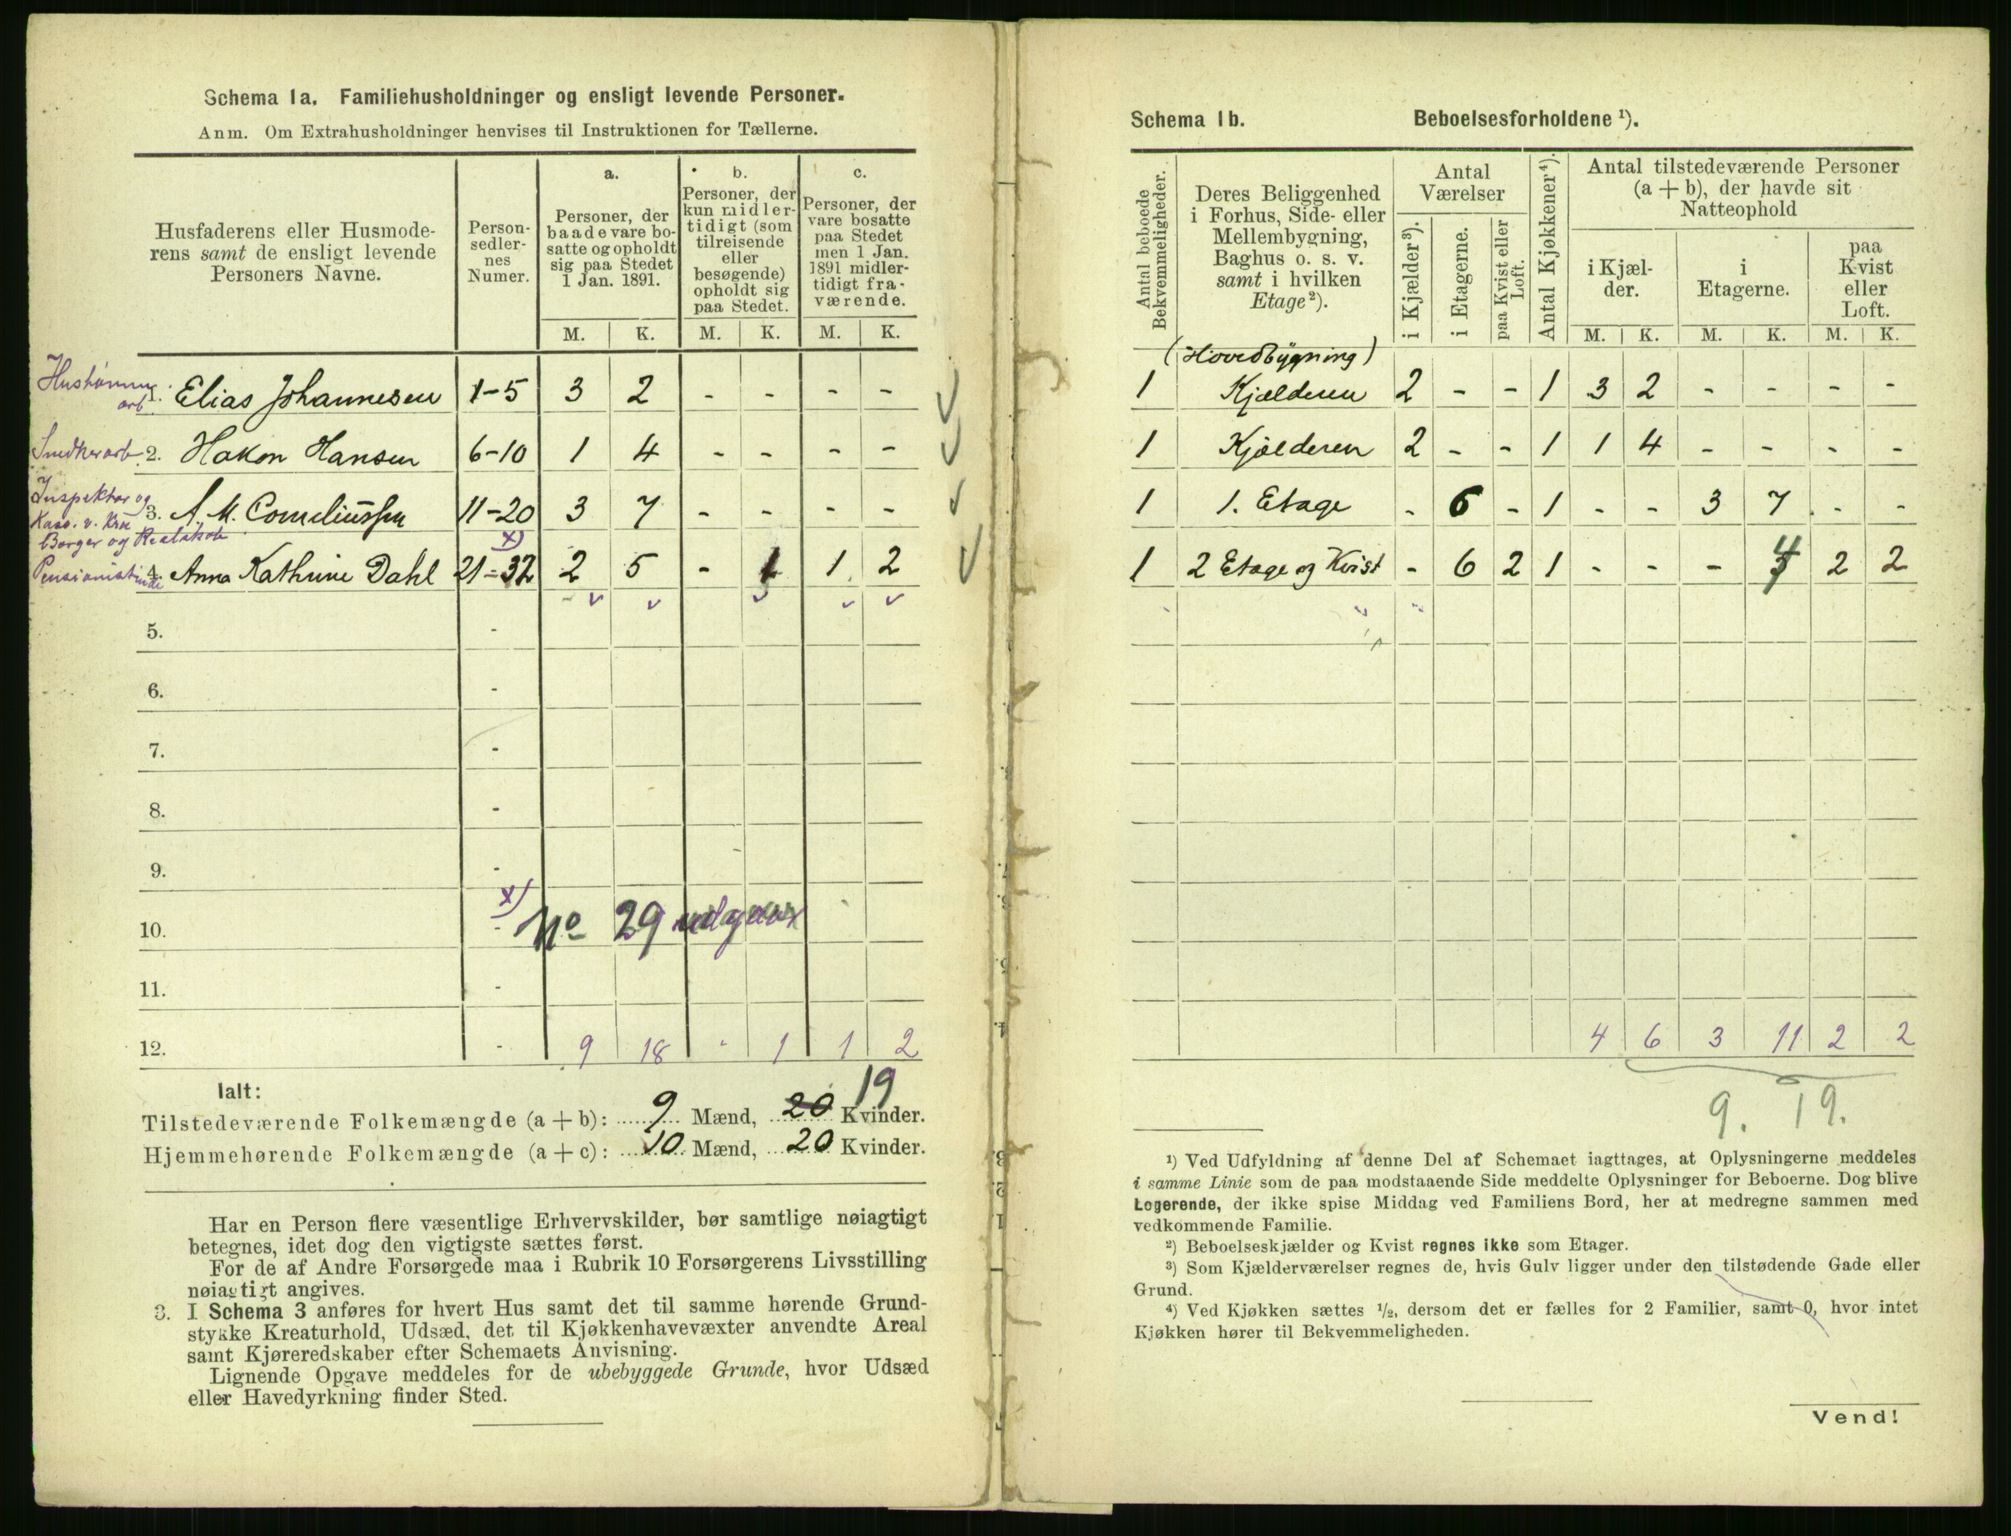 Schema 1a. Familiehusholdninger og ensligt levende Personer.
Anm. Om Extrahusholdninger henvises til Instruktionen for Tællerne.
Husfaderens eller Husmode-
rens samt de ensligt levende
Personers Navne.
Person-
sedler-
nes
Numer.
a.
Personer, der
baade vare bo-
satte og opholdt
sig paa Stedet
1 Jan. 1891.
b.
Personer, der
kun midler-
tidigt (som
tilreisende
eller
besøgende)
opholdt sig
paa Stedet.
c.
Personer, der
vare bosatte
paa Stedet
men 1 Jan.
1891 midler-
tidigt fra-
værende.
M. K. M. K. M. K.
1. Elias Johannesen 1-5 3 2 - - - -
Snedkerarb. 2. Hakon Hansen 6-10 1 4 - - - -
Inspektør og
3. A. M. Corneliussen 11-20 3 7 - - - -
Borger og Realskole
x)
4. Anna Kathrine Dahl 21-32 2 5 - 1 1 2
5. -
6. -
7. -
8. -
9. -
x)
10. - No 29 udgaar
11. -
12. - 9 18 - 1 1 2
Ialt: 19
Tilstedeværende Folkemængde (a + b): 9 Mænd, 20 Kvinder.
Hjemmehørende Folkemængde (a + c): 10 Mænd, 20 Kvinder.
Har en Person flere væsentlige Erhvervskilder, bør samtlige nøiagtigt
betegnes, idet dog den vigtigste sættes først.
For de af Andre Forsørgede maa i Rubrik 10 Forsørgerens Livsstilling
nøiagtigt angives.
3. I Schema 3 anføres for hvert Hus samt det til samme hørende Grund-
stykke Kreaturhold, Udsæd, det til Kjøkkenhavevæxter anvendte Areal
samt Kjøreredskaber efter Schemaets Anvisning.
Lignende Opgave meddeles for de ubebyggede Grunde, hvor Udsæd
eller Havedyrkning finder Sted.
Schema 1b. Beboelsesforholdene ¹).
Antal beboede
Bekvemmeligheder.
Deres Beliggenhed
i Forhus, Side- eller
Mellembygning,
Baghus o. s. v.
samt i hvilken
Etage²).
Antal
Værelser
i Kjælder³).
i Etagerne.
paa Kvist eller
Loft.
Antal Kjøkkener⁴).
Antal tilstedeværende Personer
(a + b), der havde sit
Natteophold
i Kjæl-
der.
i
Etagerne.
paa
Kvist
eller
Loft.
M. K. M. K. M. K.
(Hovedbygning)
1 Kjælderen 2 - - 1 3 2 - - - -
1 Kjælderen 2 - - 1 1 4 - - - -
1 1. Etage - 6 - 1 - - 3 7 - -
1 2 Etage og Kvist - 6 2 1 - - - 4 2 2
4 6 3 11 2 2
9. 19.
¹) Ved Udfyldning af denne Del af Schemaet iagttages, at Oplysningerne meddeles
i samme Linie som de paa modstaaende Side meddelte Oplysninger for Beboerne. Dog blive
Logerende, der ikke spise Middag ved Familiens Bord, her at medregne sammen med
vedkommende Familie.
²) Beboelseskjælder og Kvist regnes ikke som Etager.
³) Som Kjælderværelser regnes de, hvis Gulv ligger under den tilstødende Gade eller
Grund.
⁴) Ved Kjøkken sættes ½, dersom det er fælles for 2 Familier, samt 0, hvor intet
Kjøkken hører til Bekvemmeligheden.
Vend!